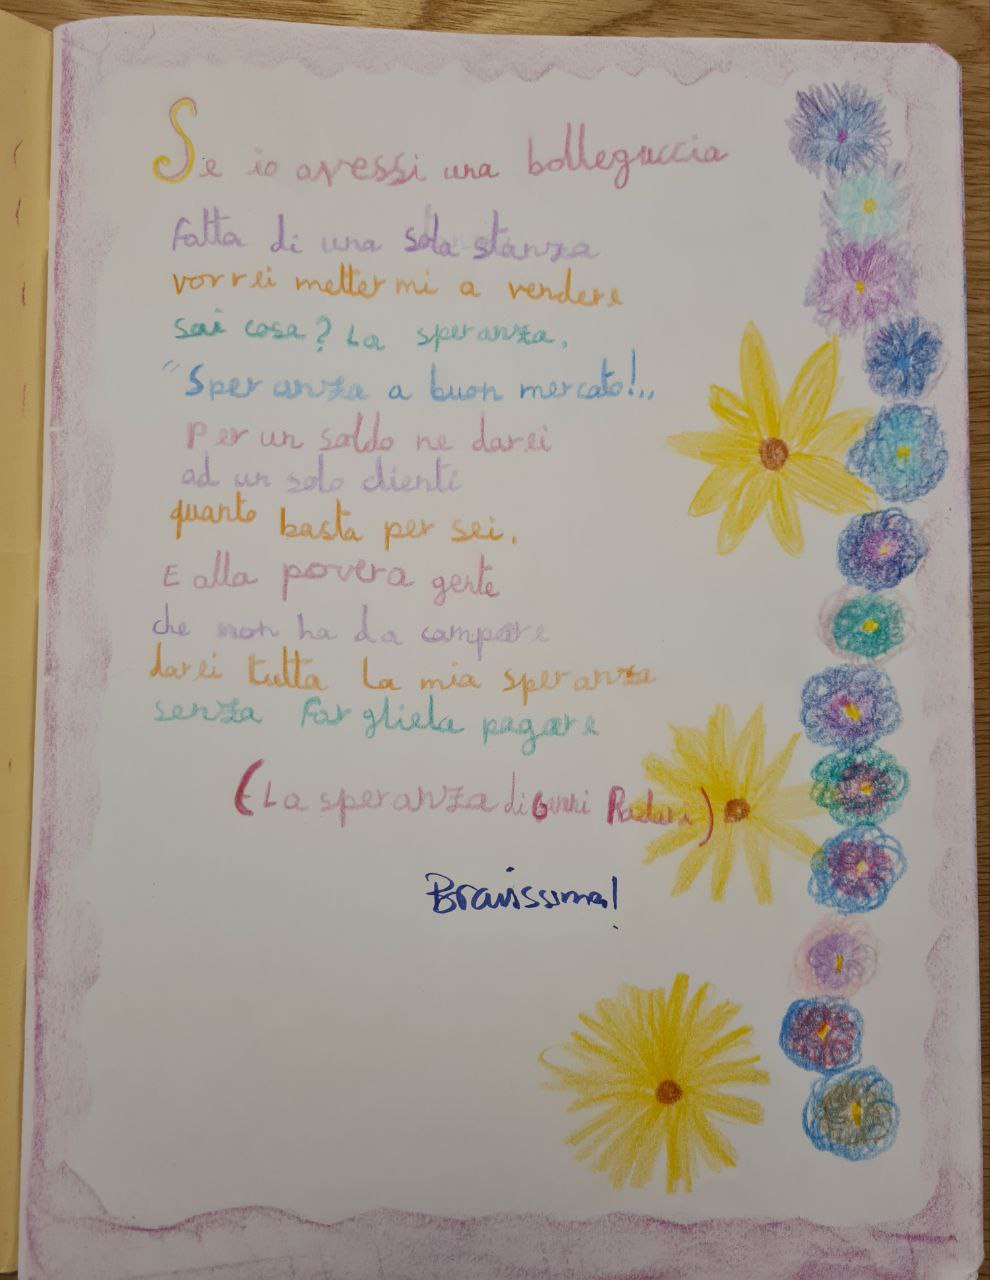 Se io avessi una bolleguccia
fatta di una sola stanza
vorrei mettermi a vendere
sai cosa? La speranza.
"Speranza a buon mercato!..
Per un soldo ne darei
ad un solo clienti
quanto basta per sei.
E alla povera gente
che non ha da campare
darei tutta la mia speranza
senza fargliela pagare
(La speranza di Gianni Rodari)
Bravissima!